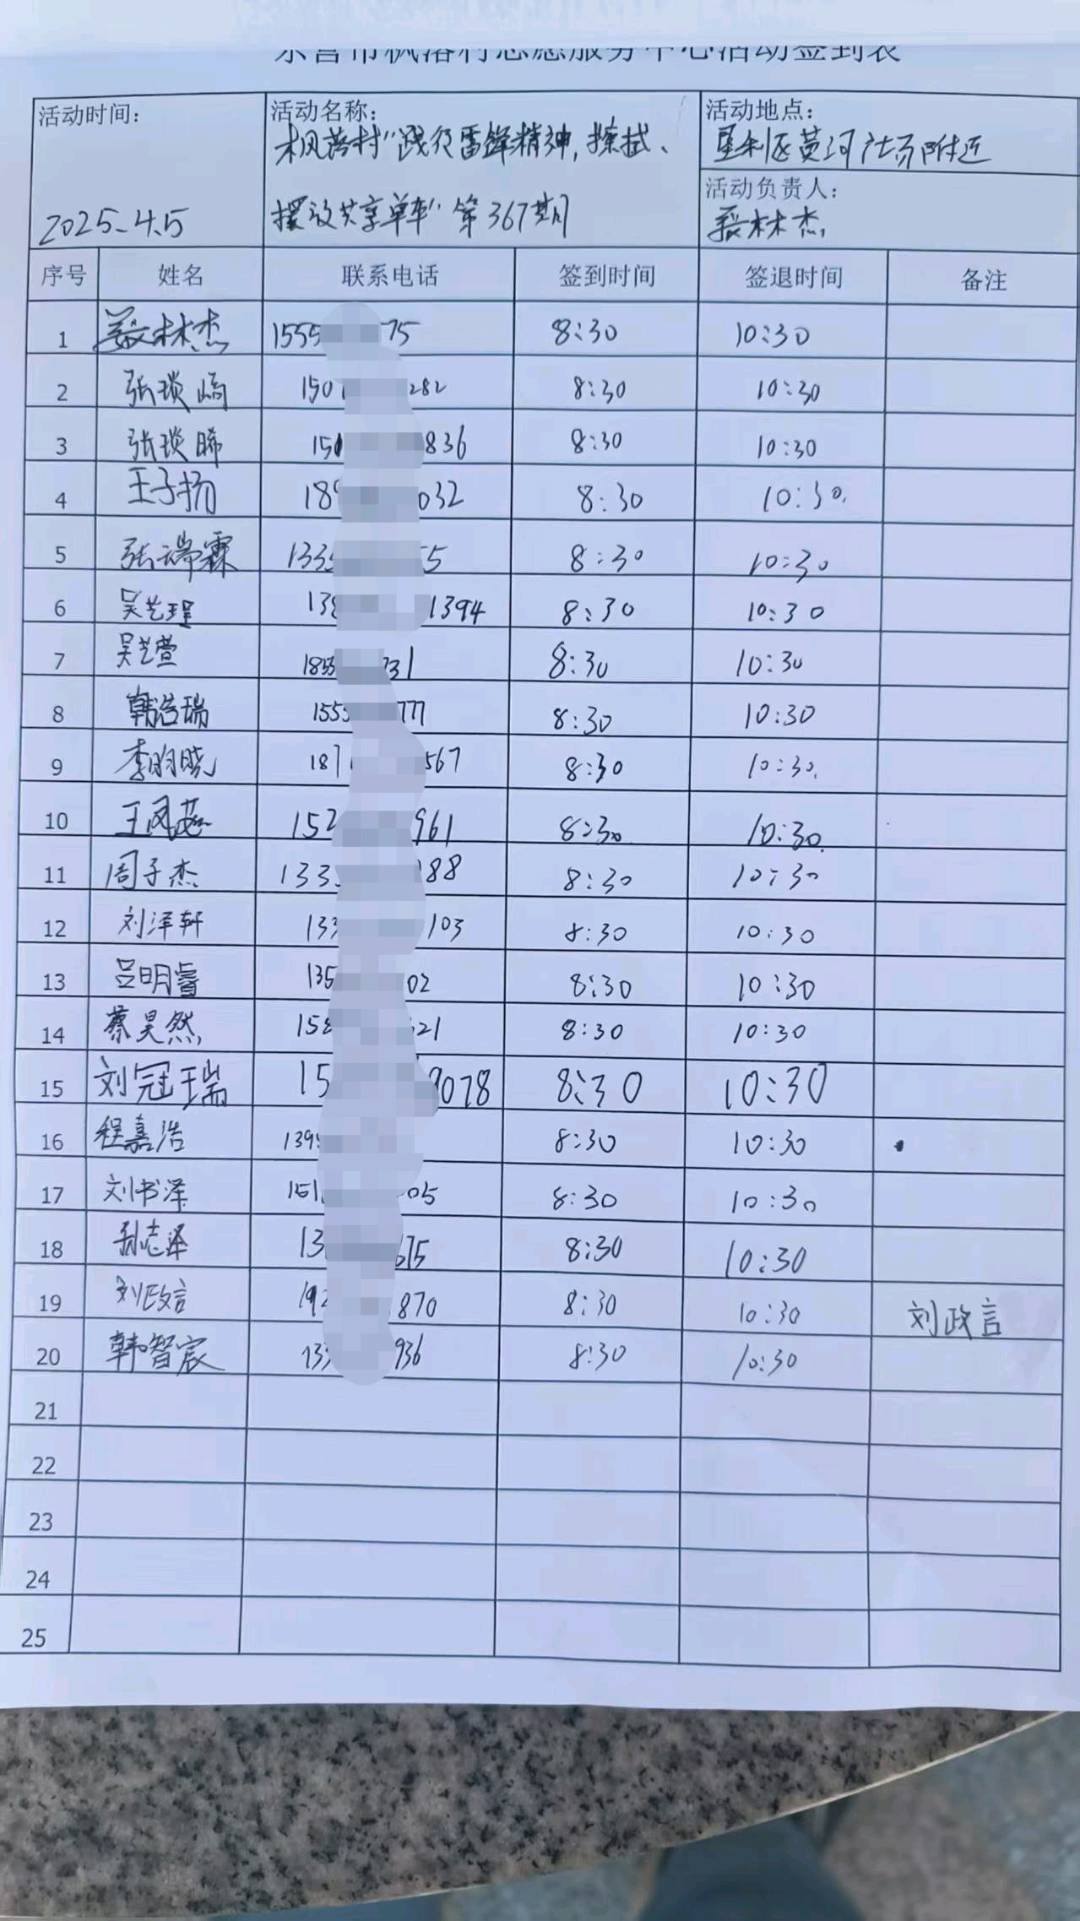 东营市枫落村志愿服务中心活动签到表
活动时间：
2025.4.5
活动名称：
枫落村"践行雷锋精神，擦拭、
摆放共享单车"第367期
活动地点：
垦利区黄河广场附近
活动负责人：
聂林杰
序号 姓名 联系电话 签到时间 签退时间 备注
1 聂林杰 1555 75 8:30 10:30
2 张琰崎 150 282 8:30 10:30
3 张琰晞 150 836 8:30 10:30
4 王子扬 189 032 8:30 10:30
5 张瑞霖 1335 55 8:30 10:30
6 吴艺珵 138 1394 8:30 10:30
7 吴艺萱 1855 731 8:30 10:30
8 韩浩瑞 1555 777 8:30 10:30
9 李昀晓 187 567 8:30 10:30
10 王凤 152 961 8:30 10:30
11 周子杰 133 188 8:30 10:30
12 刘泽轩 133 103 8:30 10:30
13 吕明睿 135 02 8:30 10:30
14 蔡昊然 158 621 8:30 10:30
15 刘冠瑞 15 9078 8:30 10:30
16 程嘉浩 1395 8:30 10:30
17 刘书泽 151 05 8:30 10:30
18 孙志泽 13 675 8:30 10:30
19 刘政言 192 870 8:30 10:30 刘政言
20 韩智宸 133 936 8:30 10:30
21
22
23
24
25